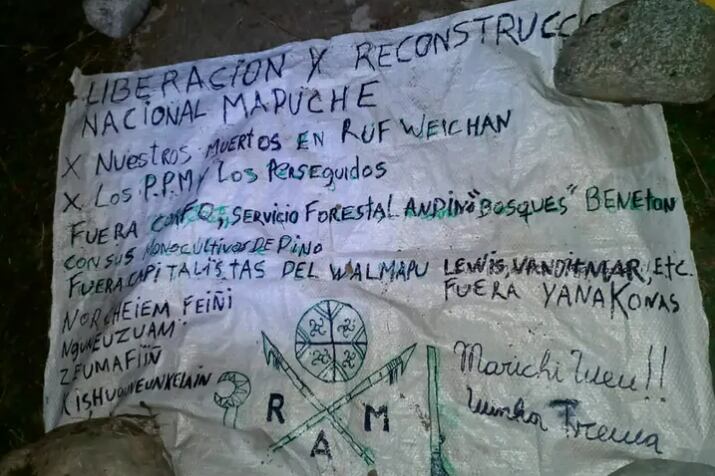 LIBERACION Y RECONSTRUCC
NACIONAL MAPUCHE
X NUESTROS MUERTOS EN RUF WEICHAN
X LOS P.P.M Y LOS PERSEGUIDOS
FUERA CORFO, SERVICIO FORESTAL ANDINO "BOSQUES" BENETON
CON SUS MONOCULTIVOS DE PINO
FUERA CAPITALISTAS DEL WALMAPU LEWIS, VANDITMAR, ETC.
FUERA YANAKONAS
NORCHEIEM FEIÑI
NGUNEUZUAM
ZEUMAFIIÑ
KISHUGUNEUNKELAIN
R A M
Marichi Weu!!